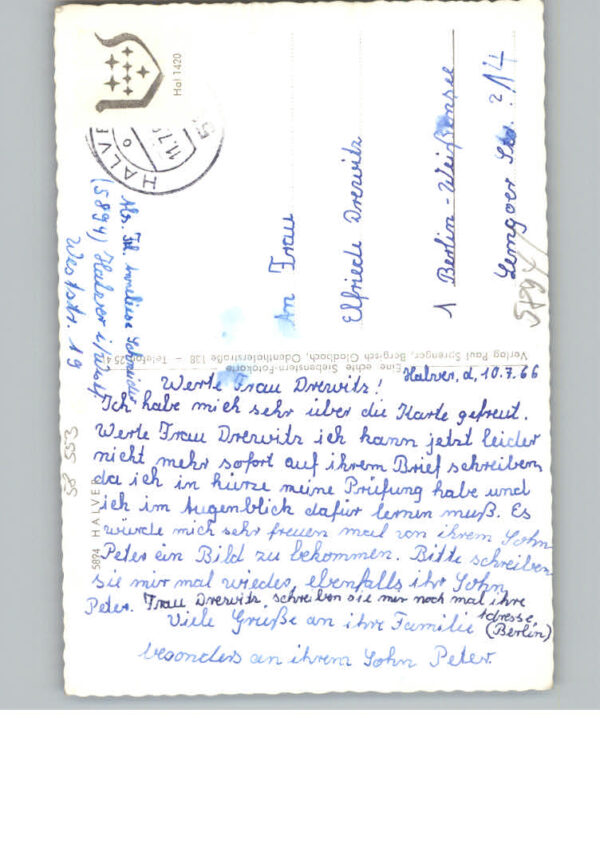 Halver, d, 10.7.66
Werte Frau Drewitz!
Ich habe mich sehr über die Karte gefreut.
Werte Frau Drewitz ich kann jetzt leider
nicht mehr sofort auf ihrem Brief schreiben
da ich in kürze meine Prüfung habe und
ich im Augenblick dafür lernen muß. Es
würde mich sehr freuen mal von ihrem Sohn
Peter ein Bild zu bekommen. Bitte schreiben
sie mir mal wieder, ebenfalls ihr Sohn
Peter. Frau Drewitz, schreiben sie mir noch mal ihre
Adresse,
(Berlin)
Viele Grüße an ihre Familie
besonders an ihrem Sohn Peter.
Abs. Frl. Anneliese Schneider
(5894) Halver i/Westf
Weststr. 19
An Frau
Elfriede Drewitz
1 Berlin-Weißensee
Lemgoer Str. 214
5894
HALVE
11.7.
Hal 1420
Eine echte Siebenstern-Fotokarte
Verlag Paul Sprenger, Bergisch Gladbach, Odenthalerstraße 138 – Telefon 25 4
5894 HALVER
58 553